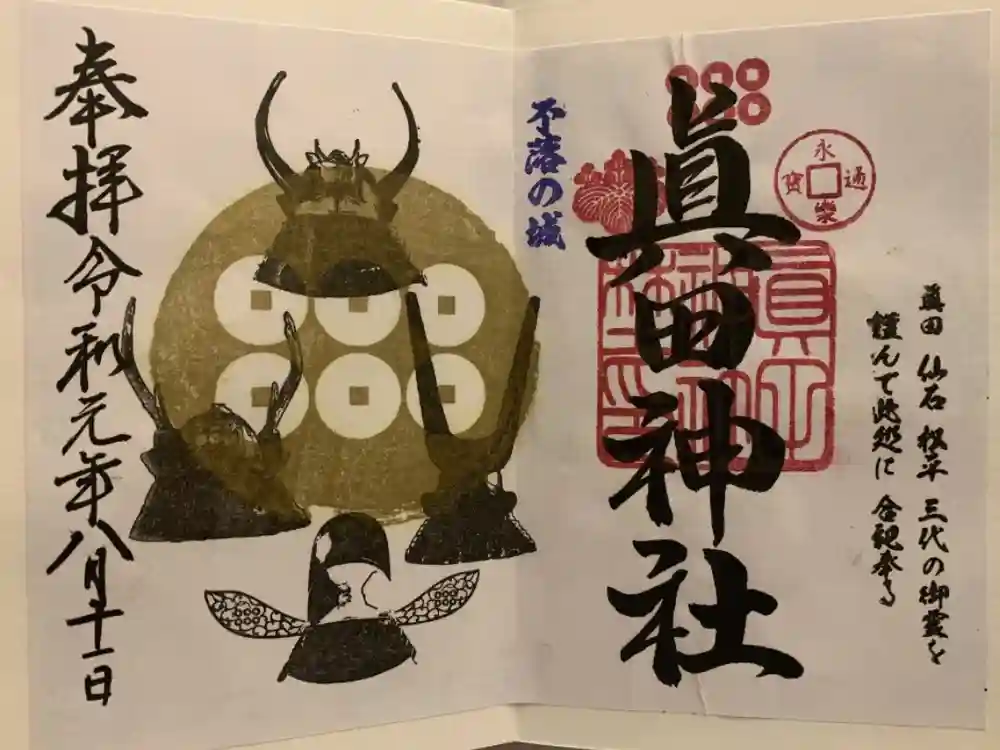 眞田 仙石 松平 三代の御霊を
謹んで此処に 合祀奉る
永樂通寳
眞田神社
不落の城
奉拝 令和元年八月十一日